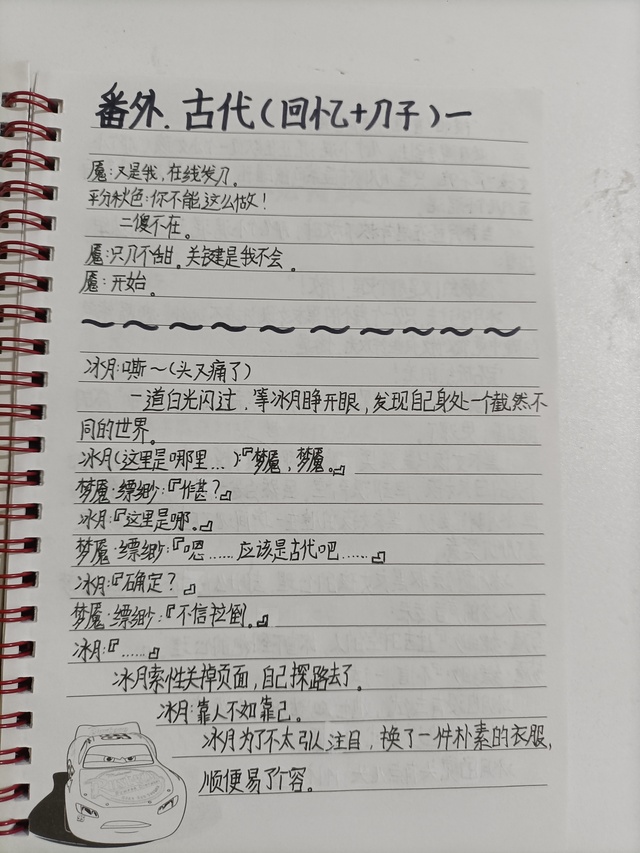 番外.古代(回忆+刀子)一
魇:又是我,在线发刀。
平分秋色:你不能这么做!
二傻不在。
魇:只刀不甜。关键是我不会。
魇:开始。
冰月:嘶~(头又痛了)
一道白光闪过,等冰月睁开眼,发现自己身处一个截然不
同的世界。
冰月(这里是哪里…):『梦魇,梦魇。』
梦魇·缥缈:『作甚?』
冰月:『这里是哪。』
梦魇·缥缈:『嗯……应该是古代吧……』
冰月:『确定?』
梦魇·缥缈:『不信拉倒。』
冰月:『……』
冰月索性关掉页面,自己探路去了。
冰月:靠人不如靠己。
冰月为了不太引人注目,换了一件朴素的衣服,
顺便易了个容。